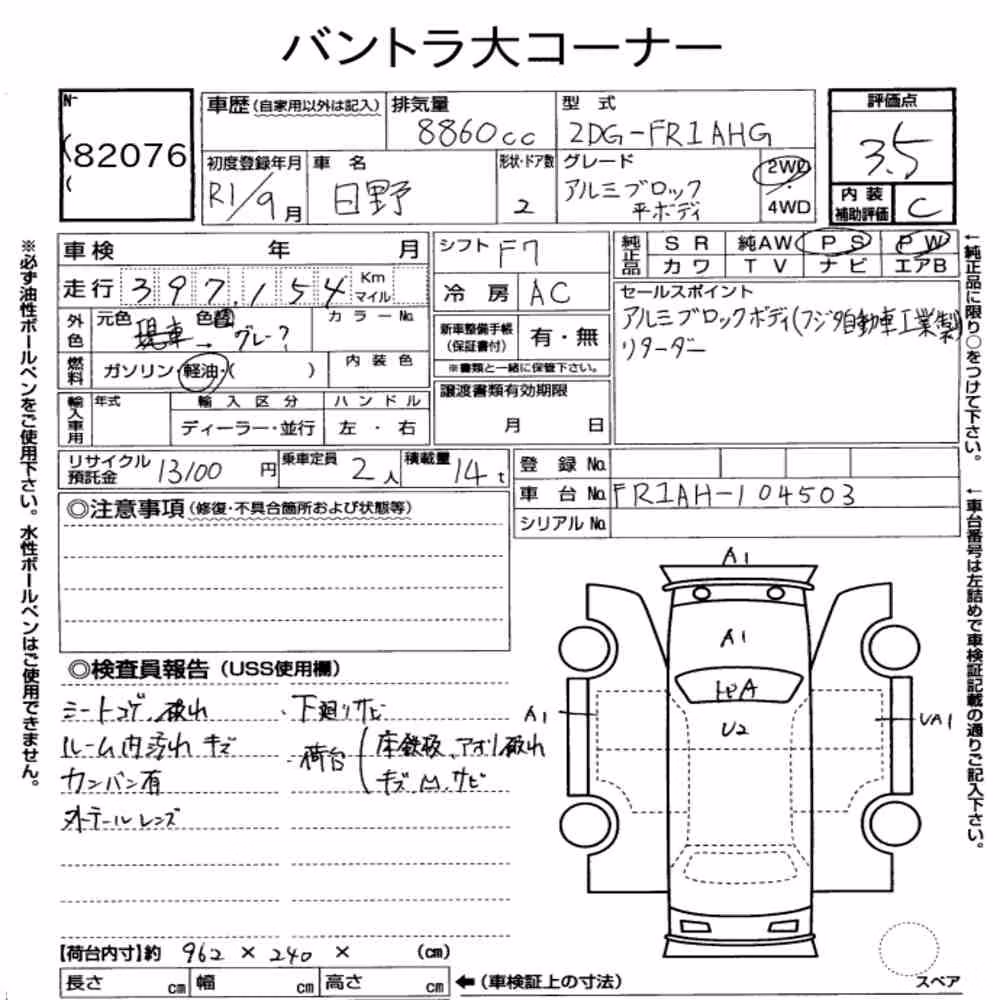 バントラ大コーナー
車歴(自家用以外は記入) 排気量 8860cc 型式 2DG-FR1AHG 評価点 3.5
82076
初度登録年月 R1/9月 車名 日野 形状・ドア数 2 グレード アルミブロック 平ボディ 2WD 4WD
内装補助評価 C
車検 年 月 シフト F7 純正品 SR 純AW PS PW
カワ TV ナビ エアB
走行 397,154 Km マイル 冷房 AC セールスポイント
アルミブロックボディ(フジタ自動車工業製)
リターダー
外色 元色 現車 → 色替 グレー? カラーNo.
新車整備手帳(保証書付) 有・無
※書類と一緒に保管下さい。
燃料 ガソリン・軽油・( ) 内装色
譲渡書類有効期限 月 日
輸入車用 年式 輸入区分 ハンドル
ディーラー・並行 左・右
リサイクル預託金 13100円 乗車定員 2人 積載量 14t 登録No.
車台No. FR1AH-104503
シリアルNo.
◎注意事項(修復・不具合箇所および状態等)
◎検査員報告(USS使用欄)
シートコゲ、破れ ・下廻りサビ
ルーム内汚れ キズ ・荷台(床鉄板、アオリ破れ
カンバン有 キズ、凹、サビ
外テールレンズ
A1
A1
U2
A1
UA1
【荷台内寸】約 962 × 240 × (cm)
長さ cm 幅 cm 高さ cm ←(車検証上の寸法)
スペア
※必ず油性ボールペンをご使用下さい。水性ボールペンはご使用できません。
←純正品に限り○をつけて下さい。
←車台番号は左詰めで車検証記載の通りご記入下さい。